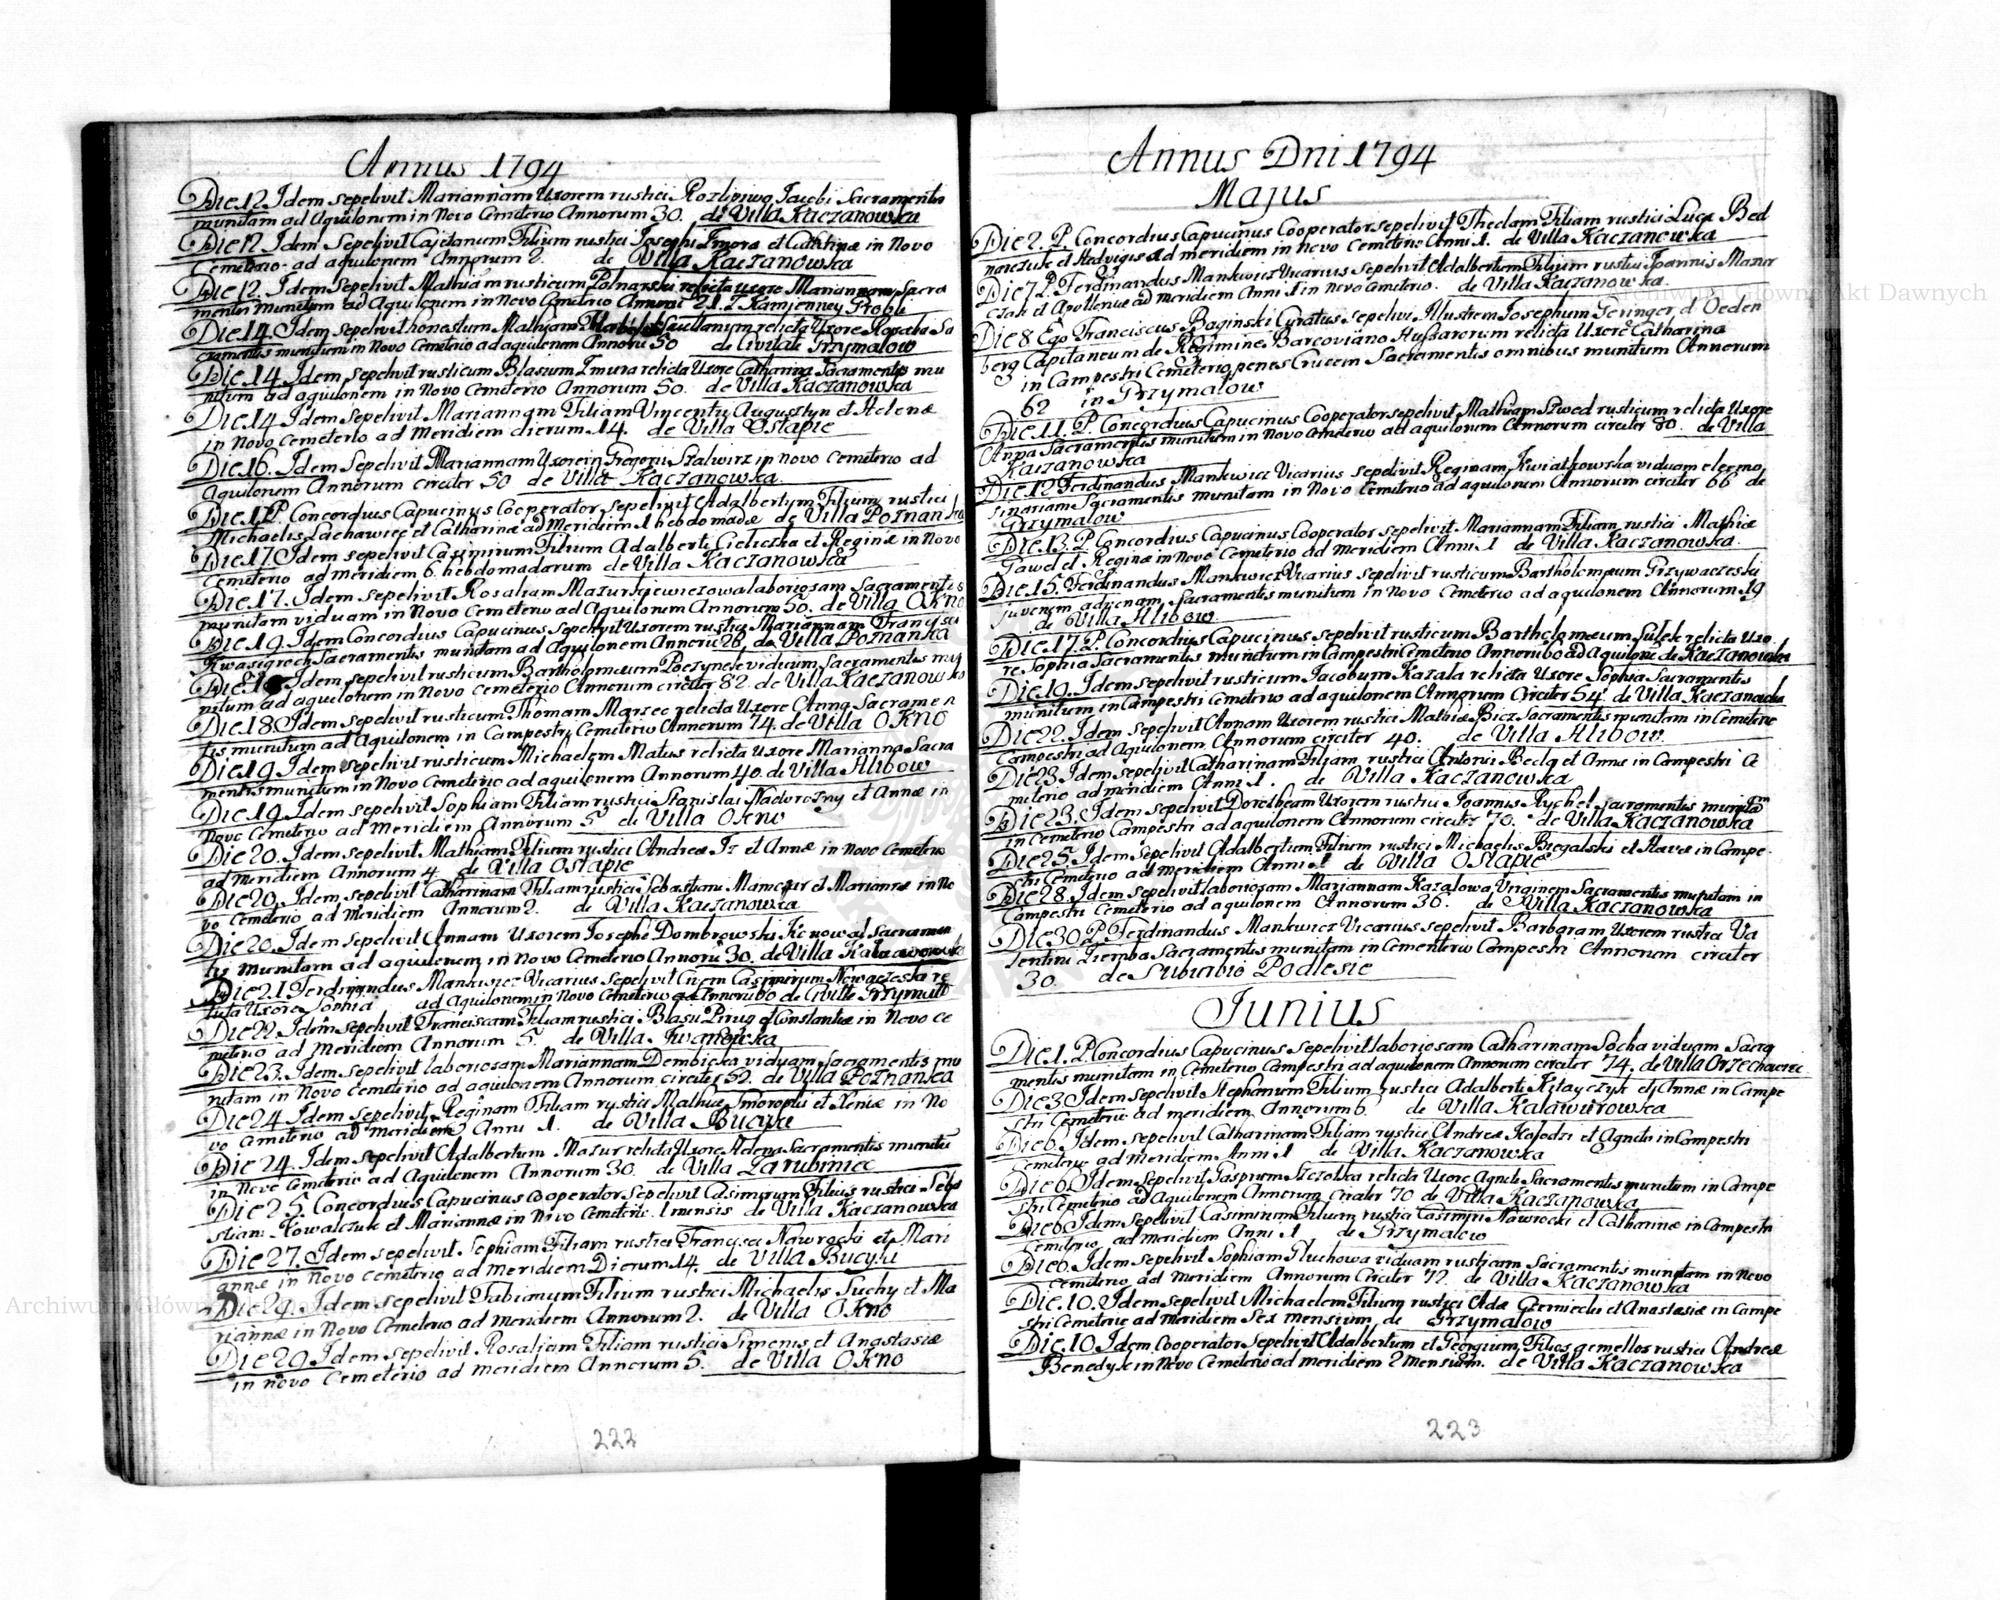 Annus 1794
Die 12. Idem sepelivit Mariannam Uxorem rustici Jacobi Sacramentis
munitam ad Aquilonem in Novo Cemeterio Annorum 30. de Villa Kaczanowka
Die 12 Idem Sepelivit Cajetanum Filium rustici Josephi Zmora et in Novo
Cemeterio ad aquilonem Annorum 2. de Villa Kaczanowka
Die 12. Idem sepelivit Mathiam rusticum relicta uxore Mariannam Sacra
mentis munitum ad Aquilonem in Novo Cemeterio
Die 14. Idem sepelivit honestum Mathiam relicta Uxore Rosalia Sa
cramentis munitum in Novo Cemeterio ad aquilonem Annoru 50 de Civitate Grzymalow
Die 14. Idem sepelivit rusticum Blasium Zmura relicta Uxore Catharina Sacramentis mu
nitum ad aquilonem in Novo Cemeterio Annorum 50. de Villa Kaczanowka
Die 14 Idem Sepelivit Mariannam Filiam Vincentii Augustyn et Helenæ
in Novo Cemeterio ad Meridiem dierum 14. de Villa Ostapie
Die 16. Idem Sepelivit Mariannam Uxorem Gregorii in novo Cemeterio ad
Aquilonem Annorum circiter 50 de Villa Kaczanowka.
P. Concordius Capucinus Cooperator sepelivit Adalbertum Filium rustici
Michaelis Lachawiec et Catharinæ ad Meridiem 1 hebdomadæ de Villa Poznanka
Die 17. Idem sepelivit Casimirum Filium Adalberti et Reginæ in Novo
Cemeterio ad Meridiem 6. hebdomadarum de Villa Kaczanowka
Die 17. Idem sepelivit Rosaliam laboriosam Sacramentis
munitam viduam in Novo Cemeterio ad Aquilonem Annorum 50. de Villa Okno
Die 19. Idem Concordius Capucinus Sepelivit Uxorem rustici Mariannam Francisci
Sacramentis munitam ad Aquilonem Annoru 28. de Villa Poznanka
Idem sepelivit rusticum Bartholomæum viduum Sacramentis mu
nitum ad aquilonem in Novo Cemeterio Annorum circiter 82. de Villa Kaczanowka
Die 18. Idem sepelivit rusticum Thomam Marzec relicta Uxore Anna Sacramen
tis munitum ad Aquilonem in Campestri Cemeterio Annorum 74. de Villa Okno
Die 19. Idem sepelivit rusticum Michaelem Matus relicta uxore Marianna Sacra
mentis munitum in Novo Cemeterio ad aquilonem Annorum 40. de Villa Hlibow
Die 19. Idem sepelivit Sophiam Filiam rustici Stanislai Nadorozny et Annæ in
Novo Cemeterio ad Meridiem Annorum 5 de Villa Okno
Die 20. Idem sepelivit Mathiam Filium rustici Andreæ et Annæ in Novo Cemeterio
ad Meridiem Annorum 4. de Villa Ostapie
Die 20. Idem sepelivit Catharinam Filiam rustici Sebastiani et Mariannæ in No
vo Cemeterio ad Meridiem Annorum 2. de Villa Kaczanowka
Die 20. Idem sepelivit Annam Uxorem Josephi Dombrowski Sacramen
tis munitam ad aquilonem in Novo Cemeterio Annoru 30. de Villa
Die 21 Ferdinandus Mankwicz Vicarius Sepelivit Civem Casimirum re
licta Uxore Sophia ad Aquilonem in Novo Cemeterio de Civitte
Die 22. Idem sepelivit Franciscam Filiam rustici Blasii Pirug et Constantiæ in Novo Ce
meterio ad Meridiem Annorum 5. de Villa Iwanowka
Die 23. Idem sepelivit laboriosam Mariannam Dembicka viduam Sacramentis mu
nitam in Novo Cemeterio ad aquilonem Annorum circiter 52. de Villa Poznanka
Die 24 Idem sepelivit Reginam Filiam rustici Mathiæ et Xeniæ in No
vo Cemeterio ad meridiem Anni 1. de Villa Bucyki
Die 24. Idem sepelivit Adalbertum Mazur relicta Uxore Helena Sacramentis munitu
in Novo Cemeterio ad Aquilonem Annorum 30. de Villa Zarubiniec
Die 25. Concordius Capucinus Cooperator Sepelivit Casimirum Filius rustici Seba
stiani Kowalczuk et Mariannæ in Novo Cemeterio 1 mensis de Villa Kaczanowka
Die 27. Idem sepelivit Sophiam Filiam rustici Francisci Nawrocki et Mari
annæ in Novo Cemeterio ad Meridiem Dierum 14. de Villa Bucyki
Die 29. Idem sepelivit Fabianum Filium rustici Michaelis Suchy et Ma
riannæ in Novo Cemeterio ad Meridiem Annorum 2. de Villa Okno
Die 29 Idem sepelivit Rosaliam Filiam rustici Simonis et Anastasiæ
in Novo Cemeterio ad Meridiem Annorum 5. de Villa Okno
222
Annus Dni 1794
Majus
Die 2. P. Concordius Capucinus Cooperator sepelivit Theclam Filiam rustici Lucæ Bed
et Hedvigis ad meridiem in Novo Cemeterio Anni 1. de Villa Kaczanowka
Die 7 P. Ferdinandus Mankwicz Vicarius Sepelivit Adalbertum Filium rustici Joannis Mazur
czak et Apolleniæ ad meridiem Anni 1 in novo Cemeterio. de Villa Kaczanowka.
Die 8 Ego Franciscus Baginski Curatus sepelivi Illustrem Josephum Geringer d Oeden
berg Capitaneum de Regimine Barcoviano Hussarorum relicta Uxore Catharina
in Campestri Cemeterio penes Crucem Sacramentis omnibus munitum Annorum
62 in Grzymalow
Die 11. P. Concordius Capucinus Cooperator sepelivit Mathiam Szwed rusticum relicta Uxore
Anna Sacramentis munitum in Novo Cemeterio ad aquilonem Annorum circiter 80. de Villa
Kaczanowka
Die 12 Ferdinandus Mankwicz Vicarius sepelivit Reginam Kwiatkowska viduam eleemo
sinariam Sacramentis munitam in Novo Cemeterio ad aquilonem Annorum circiter 66 de
Grzymalow
Die 13. P. Concordius Capucinus Cooperator sepelivit Mariannam Filiam rustici Mathiæ
Gawel et Reginæ in Novo Cemeterio ad Meridiem Anni 1 de Villa Kaczanowka.
Die 15. Ferdinandus Mankwicz Vicarius sepelivit rusticum Bartholomæum Grzywaczeski
juvenem advenam Sacramentis munitum in Novo Cemeterio ad aquilonem Annorum 19
de Villa Hlibow
Die 17. P. Concordius Capucinus sepelivit rusticum Bartholomæum Sulek relicta Uxo
re Sophia Sacramentis munitum in Campestri Cemeterio Annoru 60 ad Aquilone de Kaczanowka
Die 19. Idem sepelivit rusticum Jacobum Kazala relicta Uxore Sophia Sacramentis
munitum in Campestri Cemeterio ad aquilonem Annorum Circiter 54 de Villa Kaczanowka
Die 22. Idem sepelivit Annam Uxorem rustici Mathiæ Bicz Sacramentis munitam in Cemeterio
Campestri ad Aquilonem Annorum circiter 40. de Villa Hlibow.
Die 23 Idem sepelivit Catharinam Filiam rustici Antonii et Annæ in Campestri Ce
meterio ad meridiem Anni 1. de Villa Kaczanowka
Die 23. Idem sepelivit Dorotheam Uxorem rustici Joannis Rychel sacramentis munitam
in Cemeterio Campestri ad aquilonem Annorum circiter 70. de Villa Kaczanowka
Die 25. Idem sepelivit Adalbertum Filium rustici Michaelis Biegalski et in Campe
stri Cemeterio ad meridiem Anni 1 de Villa Ostapie
Die 28. Idem sepelivit laboriosam Mariannam Kazalowa Virginem Sacramentis munitam in
Campestri Cemeterio ad aquilonem Annorum 36. de Villa Kaczanowka
Die 30 P. Ferdinandus Mankwicz Vicarius sepelivit Barbaram Uxorem rustici Va
lentini Ziemba Sacramentis munitam in Cementerio Campestri Annorum circiter
30. de Suburbio Podlesie
Junius
Die 1. P. Concordius Capucinus Sepelivit laboriosam Catharinam Socha viduam Sacra
mentis munitam in Cemeterio Campestri ad aquilonem Annorum circiter 74. de Villa Orzechowiec
Die 3. Idem sepelivit Stephanum Filium rustici Adalberti et Annæ in Campe
stri Cemeterio ad meridiem Annorum 6. de Villa Kalawurowska
Die 6. Idem sepelivit Catharinam Filiam rustici Andreæ Kolodzi et Agnetis in Campestri
Cemeterio ad Meridiem Anni 1 de Villa Kaczanowka
Die 6. Idem Sepelivit Gasparum relicta Uxore Agnete Sacramentis munitum in Campe
stri Cemeterio ad Aquilonem Annorum Circiter 70 de Villa Kaczanowka
Die 6 Idem Sepelivit Casimirum Filium rustici Casimiri Nawrocki et Catharinæ in Campestri
Cemeterio ad meridiem Anni 1 de Grzymalow
Die 6. Idem sepelivit Sophiam Gluchowa viduam rusticam Sacramentis munitam in Novo
Cemeterio ad Meridiem Annorum Circiter 72. de Villa Kaczanowka
Die 10. Idem sepelivit Michaelem Filium rustici Adæ et Anastasiæ in Campe
stri Cemeterio ad Meridiem Sex mensium de Grzymalow
Die 10. Idem Cooperator Sepelivit Adalbertum et Georgium Filios gemellos rustici Andreæ
Benedyk in Novo Cemeterio ad meridiem 2 mensium. de Villa Kaczanowka
223
Archiwum Główne Akt Dawnych